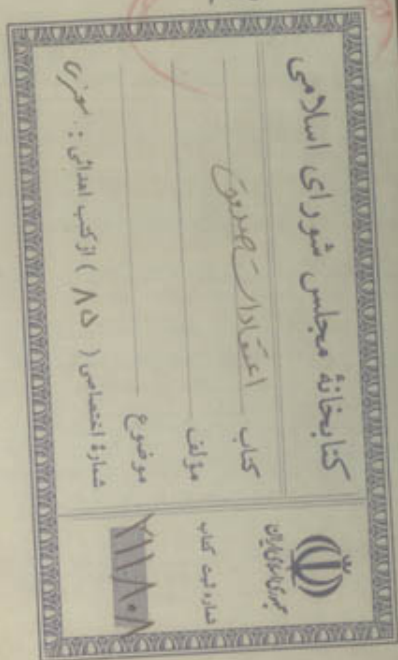 کتابخانهٔ مجلس شورای اسلامی
کتاب اعتقادات صدوق
مؤلف
موضوع
شمارهٔ اختصاصی ( ۸۵ ) از کتب اهدائی :
جمهوری اسلامی ایران
شماره ثبت کتاب